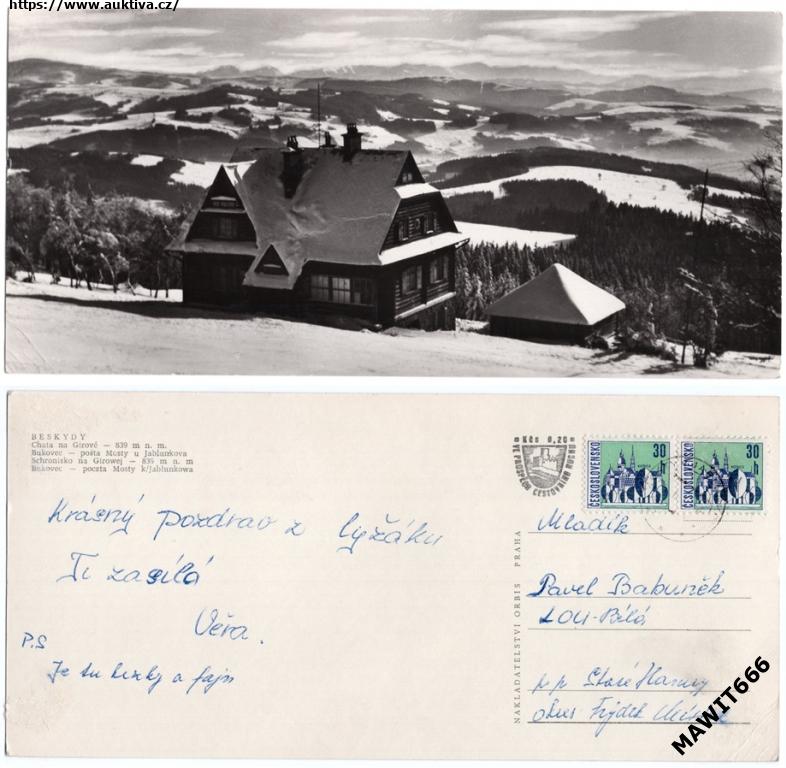 https://www.auktiva.cz/
BESKYDY
Chata na Girové — 839 m n. m.
Bukovec — pošta Mosty u Jablunkova
Schronisko na Girowej — 839 m n. m
Bukovec — poczta Mosty k/Jabłunkowa
Kčs 0,20
VE PROSPĚCH CESTOVNÍHO RUCHU
ČESKOSLOVENSKO
30 h
ČESKOSLOVENSKO
30 h
Krásný pozdrav z lyžáku
Ti zasílá
Věra.
P.S
Je tu hezky a fajn
NAKLADATELSTVÍ ORBIS PRAHA
Mladík
Pavel Babuněk
Bílá
p.p Staré Hamry
okres Frýdek
MAWIT666